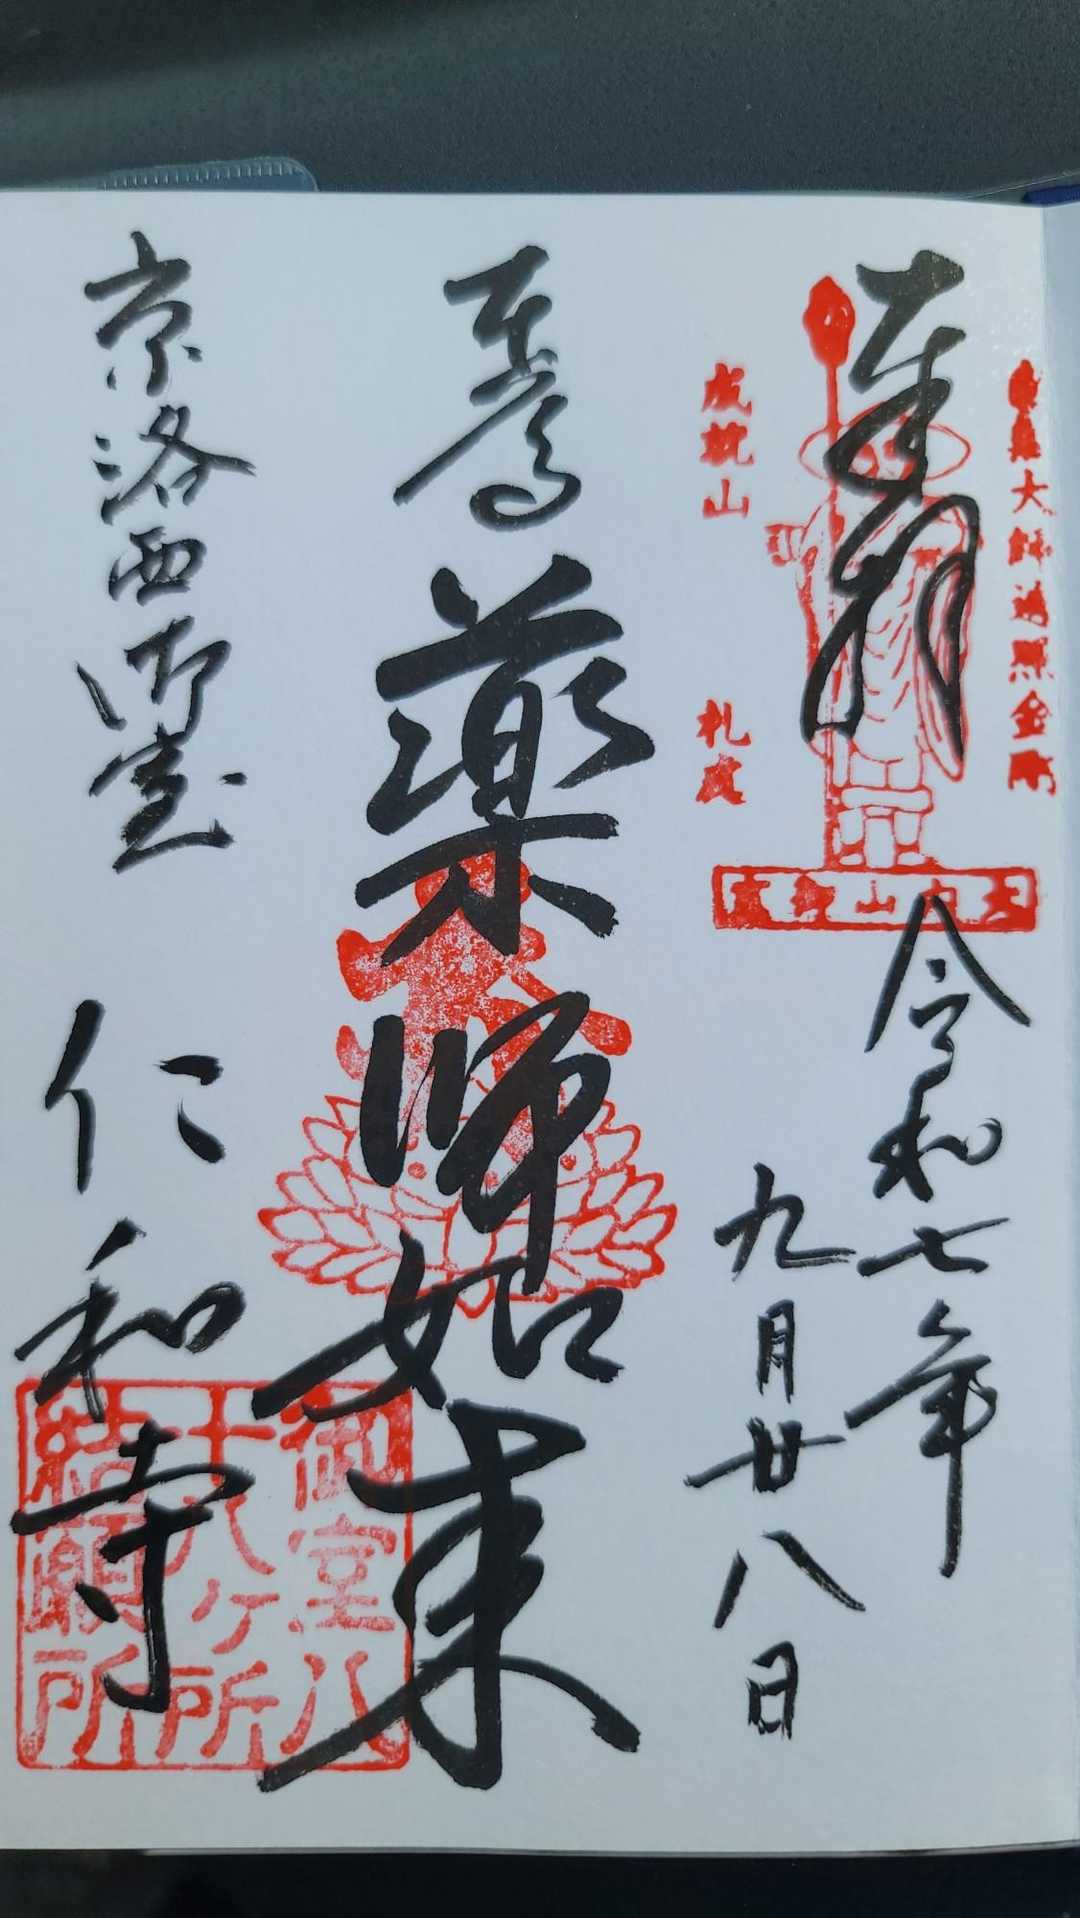 奉拝
南無大師遍照金剛
成就山
令和七年
九月廿八日
薬師如来
京洛西御室 仁和寺
御室八
十八ヶ所
結願所